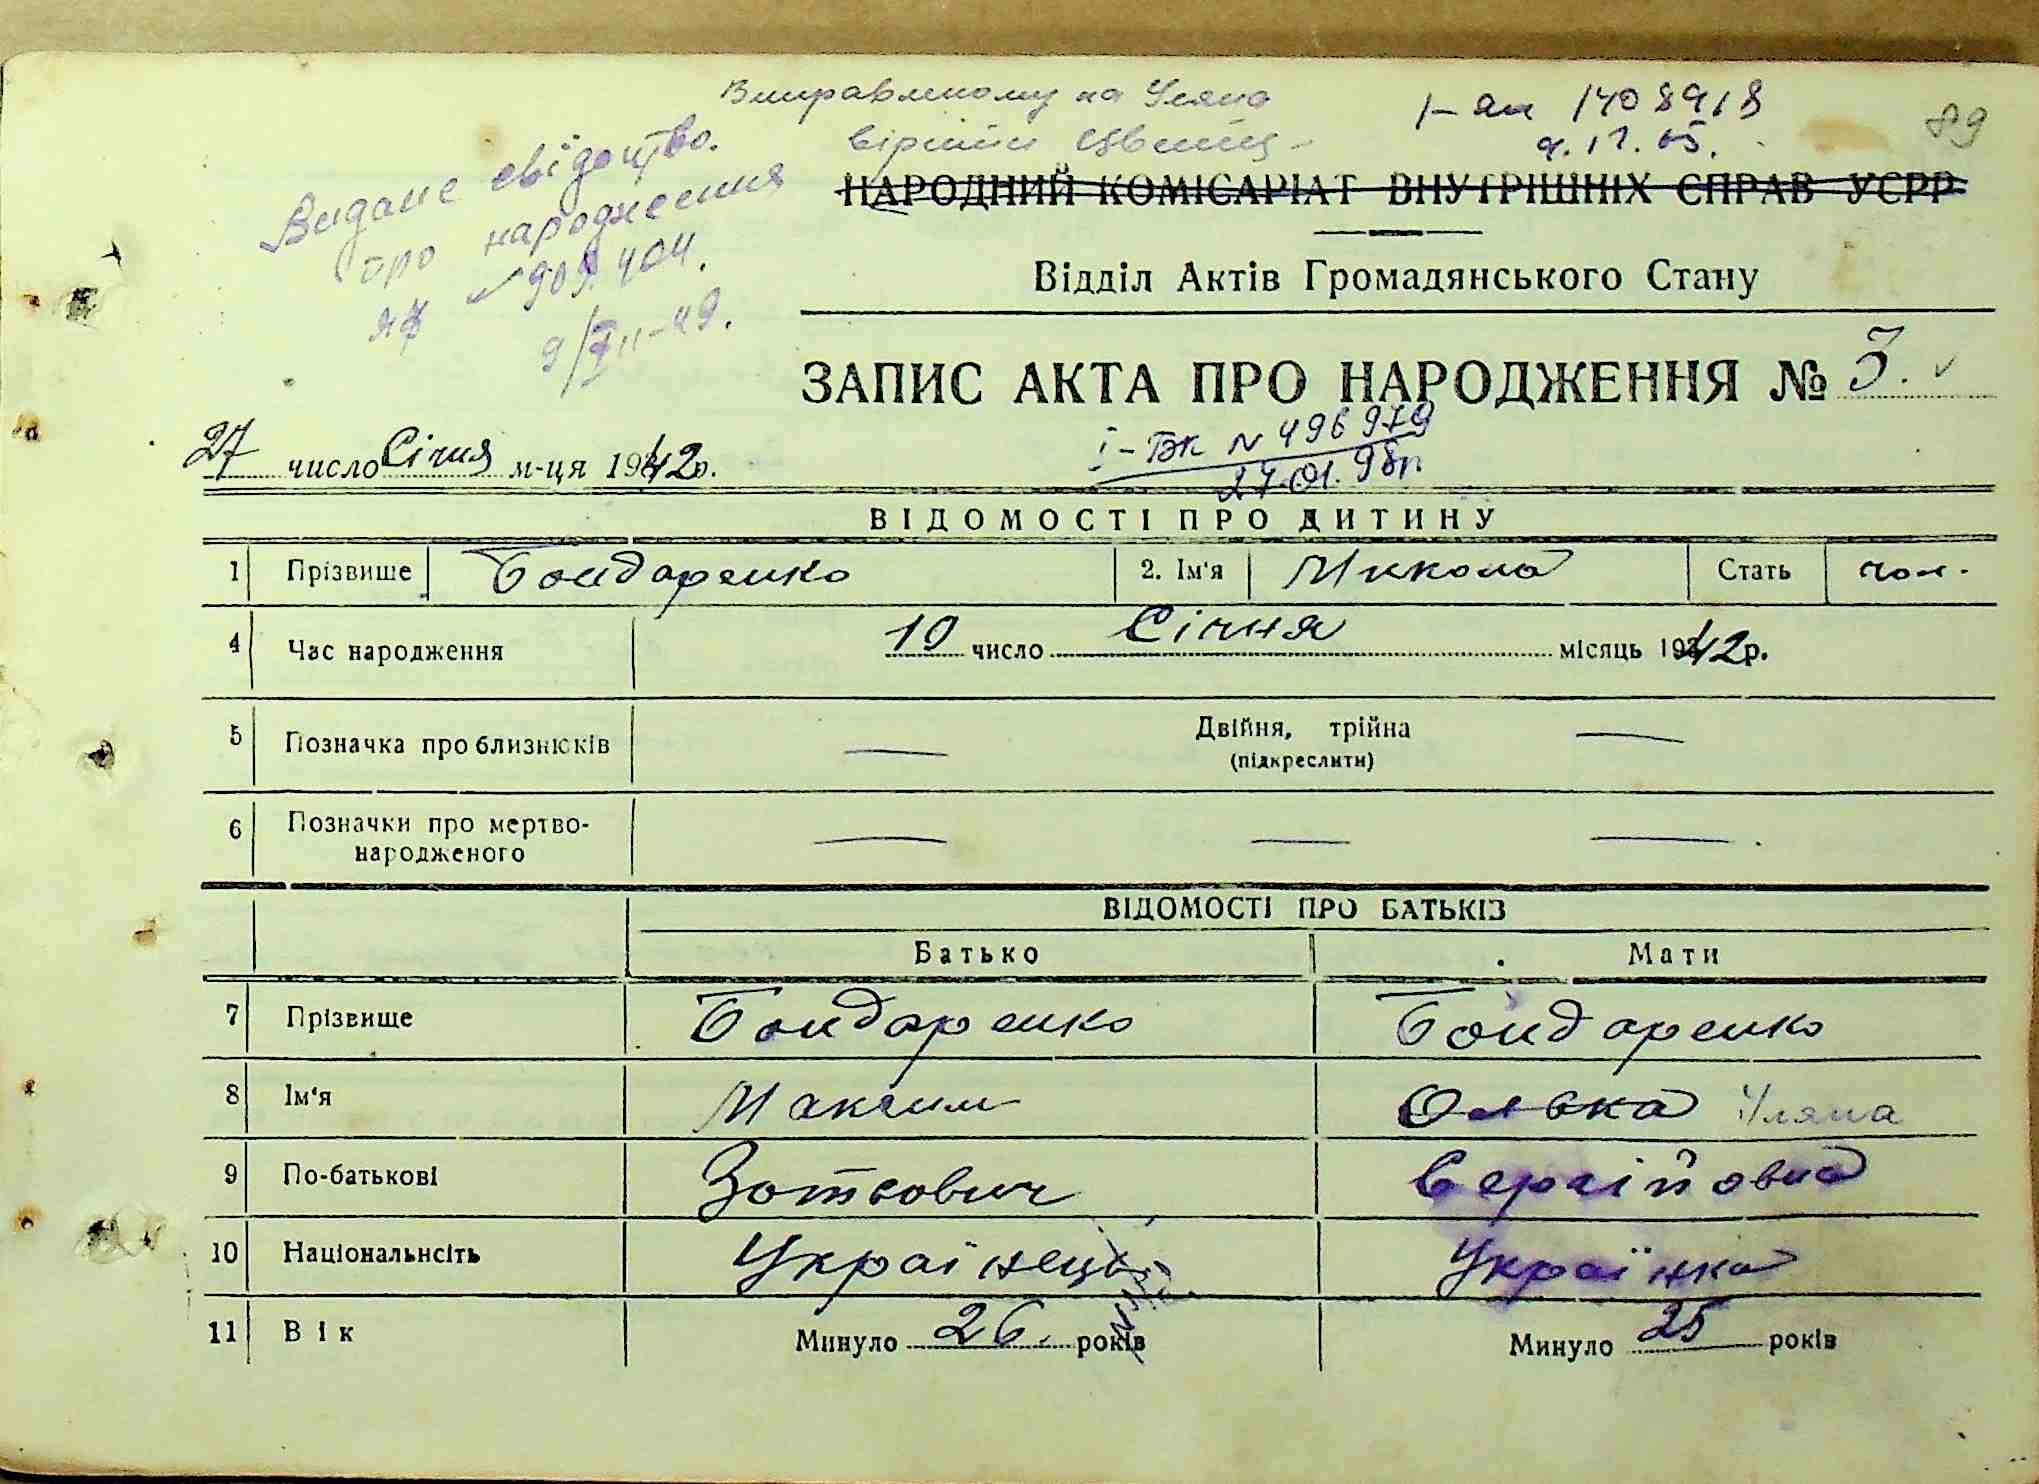 Виправленому на Уляна
вірити
I-ан 1408918
89
Видане свідоцтво
про народження
яф 909404.
9/VII-49.
НАРОДНИЙ КОМІСАРІАТ ВНУТРІШНІХ СПРАВ УСРР
Відділ Актів Громадянського Стану
ЗАПИС АКТА ПРО НАРОДЖЕННЯ № 3.
27 число Січня м-ця 1942р.
I-БК N 496979
27.01.98р
ВІДОМОСТІ ПРО ДИТИНУ
1 Прізвище Бондаренко 2. Ім'я Микола Стать чол.
4 Час народження 10 число Січня місяць 1942р.
5 Позначка про близнюків — Двійня, трійна —
(підкреслити)
6 Позначки про мертво-
народженого — — —
ВІДОМОСТІ ПРО БАТЬКІВ
Батько Мати
7 Прізвище Бондаренко Бондаренко
8 Ім'я Максим Олька Уляна
9 По-батькові Зотович Сергійовна
10 Національнсіть Українець Українка
11 Вік Минуло 26. років Минуло 25 років